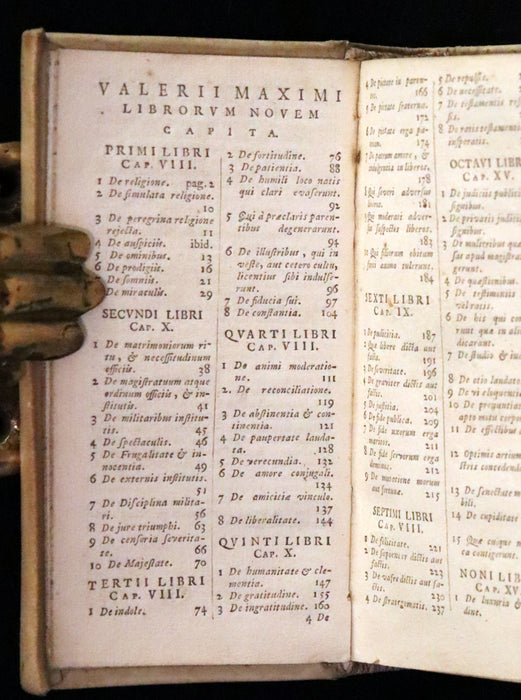 VALERII MAXIMI
LIBRORVM NOVEM
CAPITA.
PRIMI LIBRI
CAP. VIII.
1 De religione. pag. 2
2 De simulata religione.
10
3 De peregrina religione
rejecta. 11
4 De auspiciis. ibid.
5 De ominibus. 13
6 De prodigiis. 16
De somniis. 21
De miraculis. 29
SECVNDI LIBRI
CAP. X.
1 De matrimoniorum ri-
tu, & necessitudinum
officiis. 38
2 De magistratuum atque
ordinum officiis, & in-
stitutis. 41
3 De militaribus institu-
tis. 45
4 De spectaculis. 46
5 De Frugalitate & in-
nocentia. 49
6 De externis institutis.
51
7 De Disciplina milita-
ri. 56
8 De jure triumphi. 63
9 De censoria severita-
te. 66
10 De Majestate. 70
TERTII LIBRI
CAP. VIII.
1 De indole. 74
2 De fortitudine. 76
3 De patientia. 88
4 De humili loco natis
qui clari evaserunt.
92
5 Qui à præclaris paren-
tibus degenerarunt.
94
6 De illustribus, qui in
veste, aut cetero cultu,
licentius sibi indulse-
runt. 96
7 De fiducia sui. 97
8 De constantia. 104
QVARTI LIBRI
CAP. VIII.
1 De animi moderatio-
ne. 111
2. De reconciliatione.
119
3 De abstinentia & con-
tinentia. 121
4 De paupertate lauda-
ta. 128
5 De verecundia. 132
6 De amore conjugali.
134
7 De amicitiæ vinculo.
137
8 De liberalitate. 144
QVINTI LIBRI
CAP. X.
1 De humanitate & cle-
mentia. 147
2 De gratitudine. 155
3 De ingratitudine. 160
4 De
4 De pietate in paren-
tes. 166
5 De pietate fraterna.
172
6 De pietate erga pa-
triam. 174
7 De parum amore, &
indulgentia in liberos.
178
8 Qui severi adversus
liberos. 181
9 Qui moderati adver-
sus suspectos liberos.
183
10 Qui filiorum obitum
forti animo tulerunt.
184
SEXTI LIBRI
CAP. IX.
1 De pudicitia. 187
2 libere dicta aut
facta. 191
3 De severitate. 196
4 graviter dictis aut
factis. 201
5 De justitia. 204
6 De fide publica. 209
7 De fide uxorum erga
maritos. 211
8 De fide servorum erga
dominos. 212
9 De mutatione morum
aut fortunæ. 215
SEPTIMI LIBRI
CAP. VIII.
1 De felicitate. 221
2 De sapienter dictis aut
factis. 223
3 De vafre dictis aut fa-
ctis. 230
4 De strategematis. 237
5 De repulsis.
6 De necessitate.
7 De testamentis
8 De ratis testamentis
insperatis.
OCTAVI LIBRI
CAP. XV.
1 De judiciis publicis
signibus.
2 De privatis judiciis
signibus.
3 De mulieribus quæ
sas apud magistrat
gerunt.
4 De quæstionibus.
5 De testimoniis
vel ratis.
6 De his qui
runt quæ in ali
dicarant.
7 De studio & in
8 De otio laudato
9 De vi eloquentiæ
10 De pronuntiatio
apto motu corpo
11 De effectibus
12 Optimis artium
stris concedendu
13 De senectute
bili.
14 De cupiditate
15 Quæ cuique
ca contigerunt.
NONI LIB
CAP. XV
1 De luxuria &
dine.